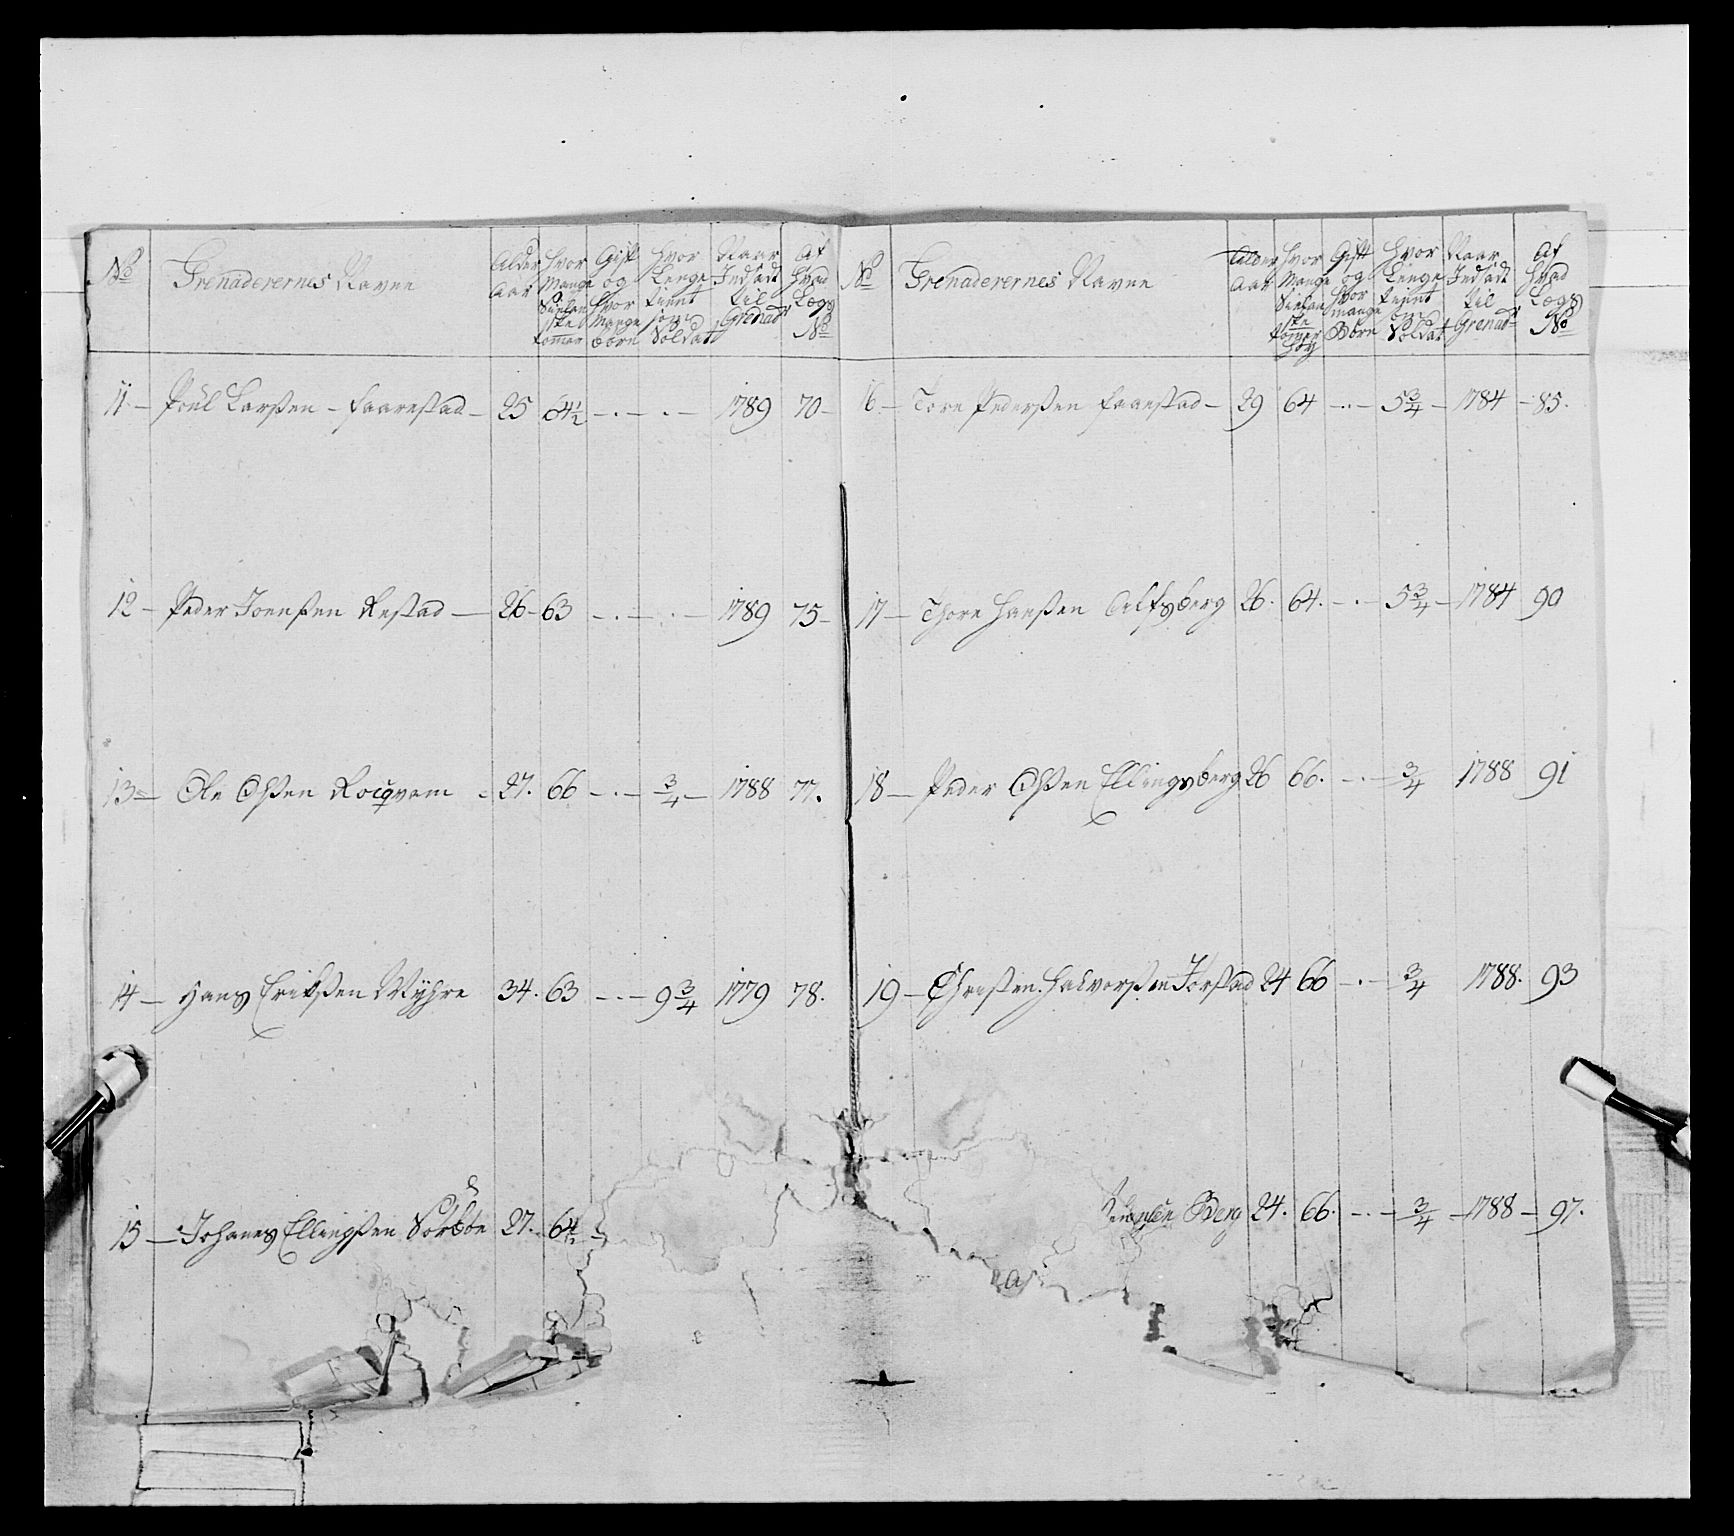 No Grenaderernes Navne Alder Aar Hvor Mange Siellanske tommer Gift og Hvor Mange børn Hvor Lenge tiennt som Soldat Naar Indsadt til Grenadr Af Hvad Lægs No
11 – Poul Larssen – Faarestad – 25 64½ – . – . – 1789 70 –
12 – Peder Joenssen Restad – 26 – 63 – . – . – 1789 75 –
13 – Ole Olssen Rocqvam – 27. 66 – . – ¾ – 1788 77.
14 – Hans Erikssen Myhre 34. 63 – . – 9¾ 1779 78.
15 – Johanes Ellingssen 27. 64½ –
No Grenaderernes Navne Alder Aar Hvor Mange Siellanske tommer Høy Gift og Hvor mange Børn Hvor Lenge tiennt som Soldat Naar Indsadt til Grenadr Af Hvad Lægs No
16 – Tore Pederssen Faarestad – 29 64 – . – 5¾ – 1784 – 85.
17 – Thore Hanssen Alfsberg 26. 64. – . – 5¾ – 1784 90
18 – Peder Olssen Ellingsberg 26 66. – . – ¾ 1788 91
19 – Christen Halvorssen Jorstad 24 66 – . – ¾ 1788. 93
Berg 24. 66. – . – ¾ – 1788 – 97.